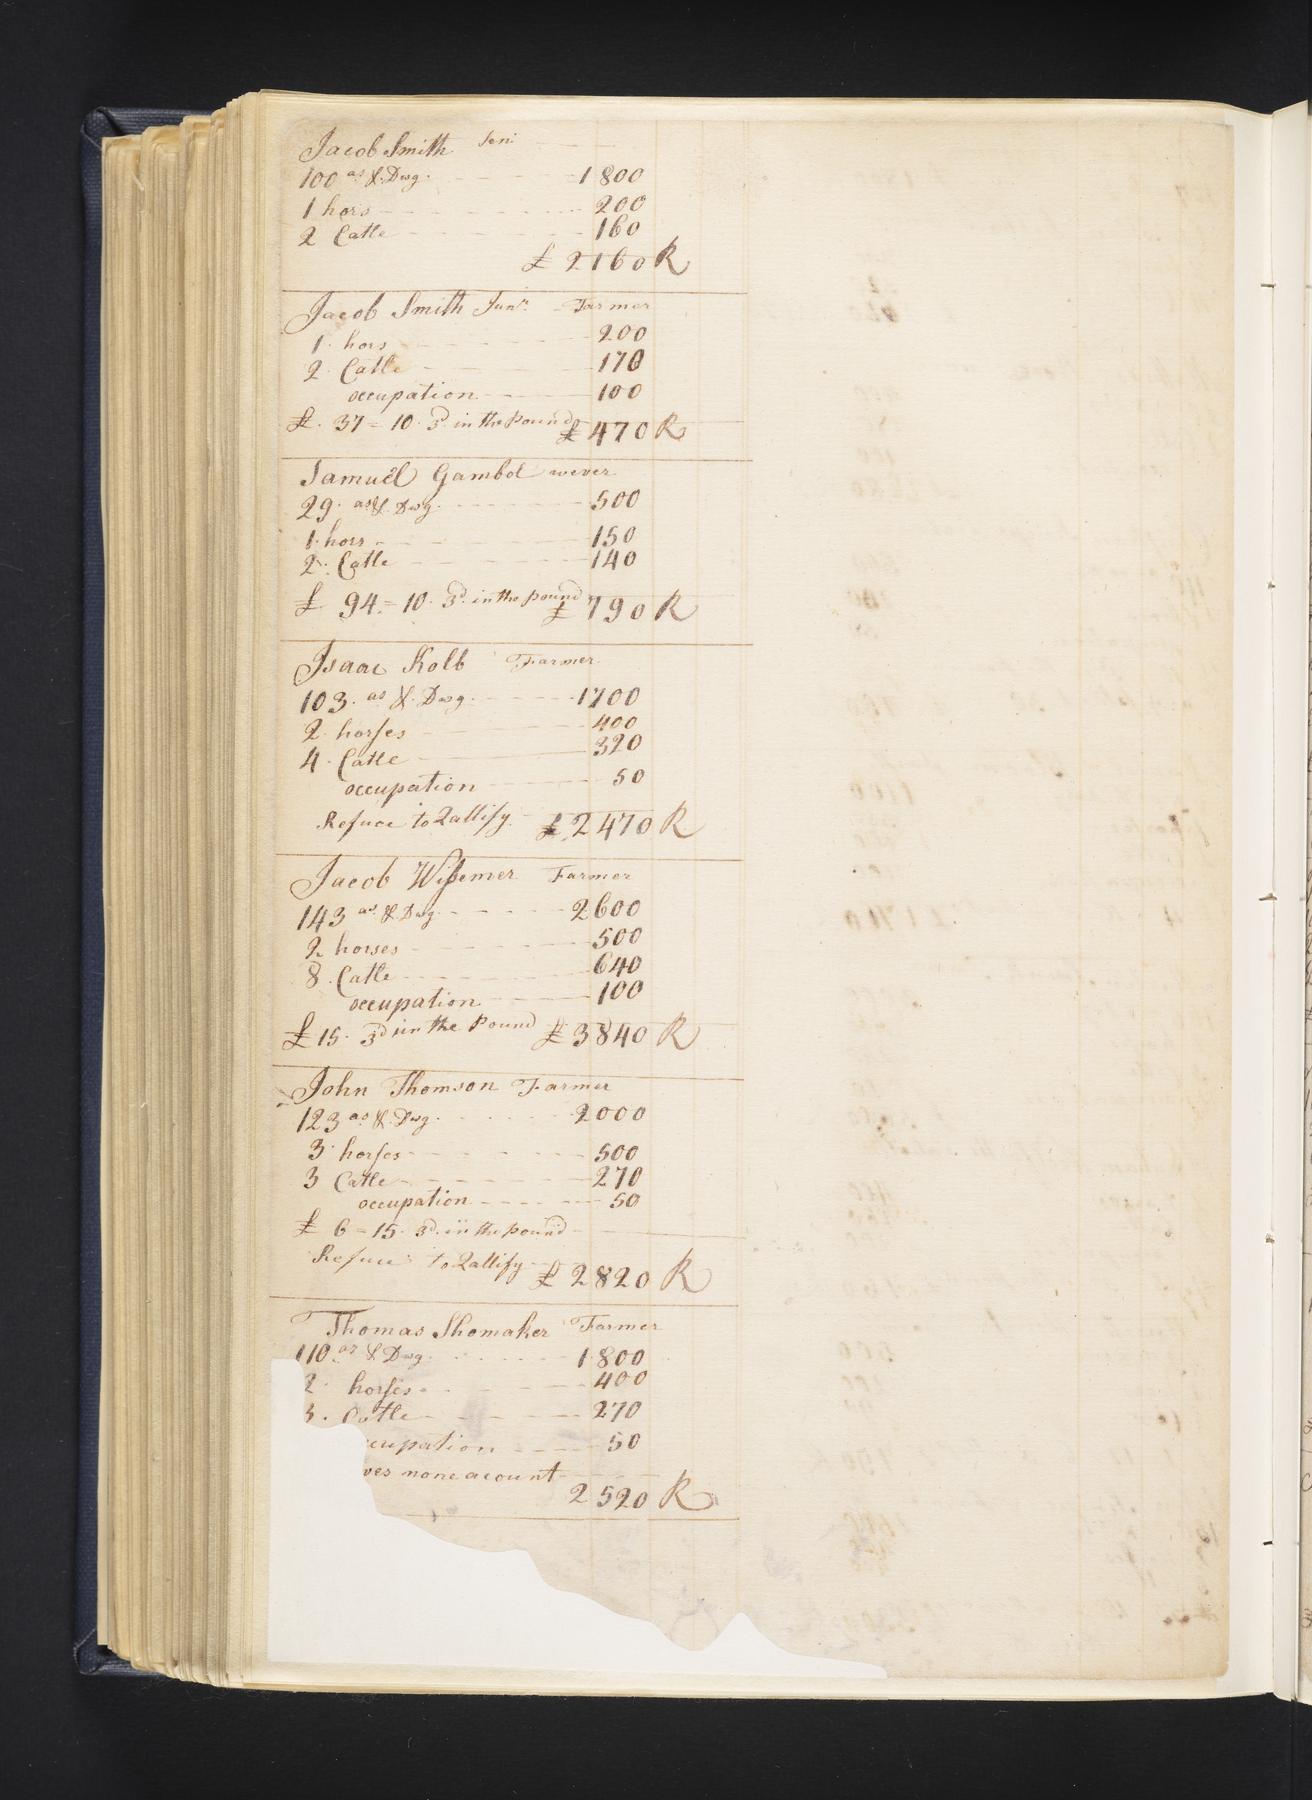 Jacob Smith Seni.
100 as & Dwg. 1800
1 hors 200
2 Catle 160
£ 2160 R
Jacob Smith Junr. Farmer
1. hors 200
2. Catle 170
occupation 100
£. 37 = 10. 3d. in the Pound £ 470 R
Samuel Gambol wever
29. as & Dwg. 500
1. hors 150
2. Catle 140
£ 94. = 10. 3d. in the pound £ 790 R
Isaac Kolb Farmer
103. as & Dwg. 1700
2. horses 400
4. Catle 320
occupation 50
Refuce to Qallify. £ 2470 R
Jacob Wissemer Farmer
143 as & Dwg. 2600
2 horses 500
8. Catle 640
occupation 100
£ 15. 3d in the Pound £ 3840 R
John Thomson Farmer
123 as & Dwg. 2000
3. horses 500
3 Catle 270
occupation 50
£ 6 = 15. 3d. in the pound
Refuce to Qallify £ 2820 R
Thomas Shomaker Farmer
110 as & Dwg. 1800
2. horses 400
3. Catle 270
ccupation 50
ves none acount
2520 R